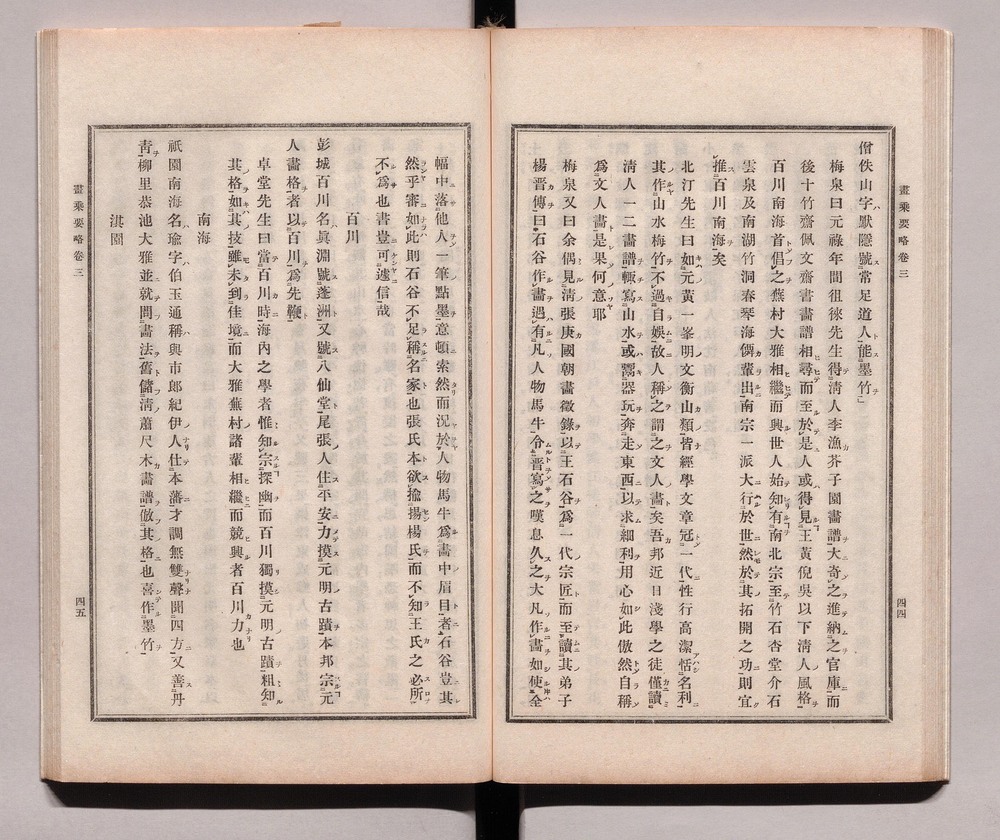 畫乘要略卷三
僧佚山字默隱號常足道人能墨竹
梅泉曰元祿年間徂徠先生得淸人李漁芥子園畫譜大奇之進納之官庫而
後十竹齋佩文齋書畫譜相尋而至於是人或得見王黃倪吳以下淸人風格
百川南海首倡之蕪村大雅相繼而興世人始知有南北宗至竹石杏堂介石
雲泉及南湖竹洞春琴海僊輩出南宗一派大行於世然於其拓開之功則宜
推百川南海矣
北汀先生曰如元黃一峯明文衡山類皆經學文章冠一代性行高潔恬名利
其作山水梅竹不過自娛故人稱之謂之文人畫矣吾邦近日淺學之徒僅讀
淸人一二畫譜輙寫山水或鬻器玩奔走東西以求細利用心如此傲然自稱
爲文人畫是果何意耶
梅泉又曰余偶見淸張庚國朝畫徵錄以王石谷爲一代宗匠而至讀其弟子
楊晋傳曰石谷作畫過有凡人物馬牛令晋寫之嘆息久之大凡作畫如使全
四四
幅中落他人一筆點墨意頓索然而況於人物馬牛爲畫中眉目者石谷豈其
然乎審如此則石谷不足稱名家也張氏本欲揄揚楊氏而不知王氏之必所
不爲也書豈可遽信哉
百川
彭城百川名眞淵號蓬洲又號八仙堂尾張人住平安力摸元明古蹟本邦宗元
人畫格者以百川爲先鞭
卓堂先生曰當百川時海內之學者惟知宗探幽而百川獨摸元明古蹟粗知
其格如其技雖未到佳境而大雅蕪村諸輩相繼而競興者百川力也
南海
祇園南海名瑜字伯玉通稱與市郎紀伊人仕本藩才調無雙聲聞四方又善丹
靑柳里恭池大雅並就問畫法舊儲淸蕭尺木畫譜倣其格也喜作墨竹
淇園
畫乘要略卷三
四五